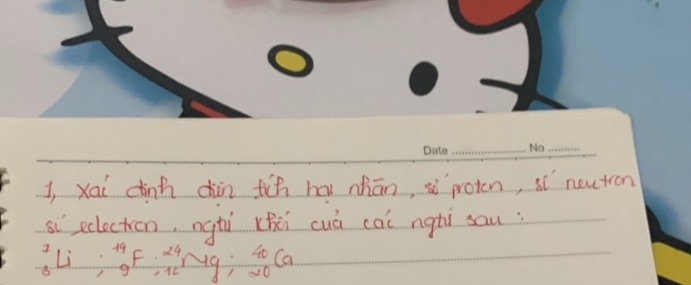 Date ............ No ..........
1, xaí định điện tích hạt nhân, số proton, số neutron
số eclectron, nghử khối cuả các nghử sau :
⁷₃Li ; ¹⁹₉F ; ²⁴₁₂Mg ; ⁴⁰₂₀Ca